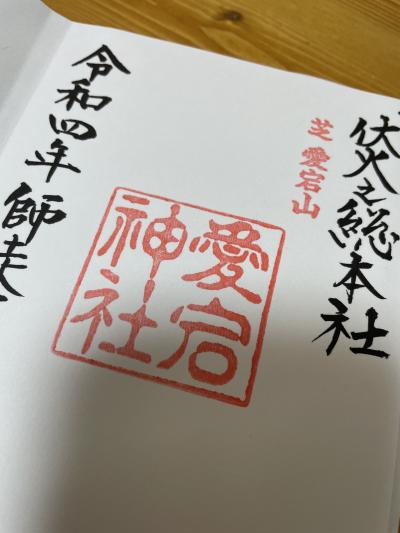 伏火之総本社
芝愛宕山
愛宕
神社
令和四年師走